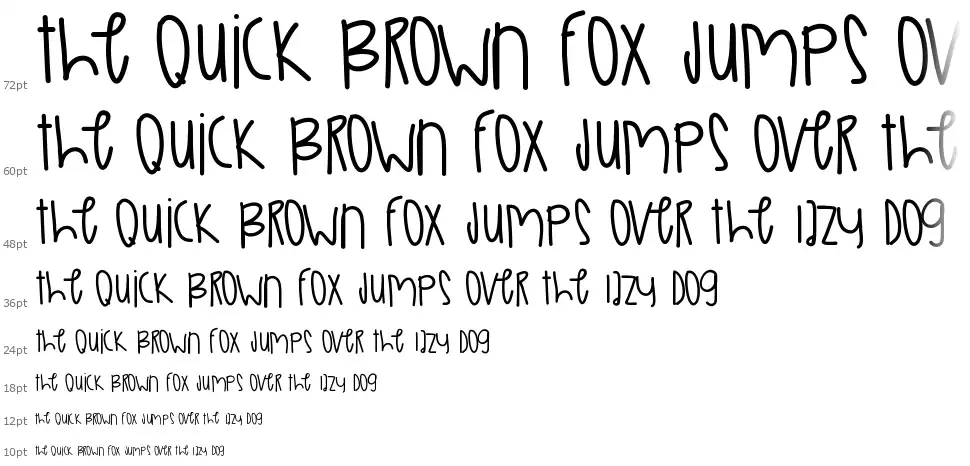 72pt the QUiCK BROWN FOX JUMPS OV
60pt the QUiCK BROWN FOX JUMPS OVeR the
48pt the QUiCK BROWN FOX JUMPS OVeR the lazy DOg
36pt the QUiCK BROWN FOX JUMPS OVeR the lazy DOg
24pt the QUiCK BROWN FOX JUMPS OVeR the lazy DOg
18pt the QUiCK BROWN FOX JUMPS OVeR the lazy DOg
12pt the QUiCK BROWN FOX JUMPS OVeR the lazy DOg
10pt the QUiCK BROWN FOX JUMPS OVeR the lazy DOg